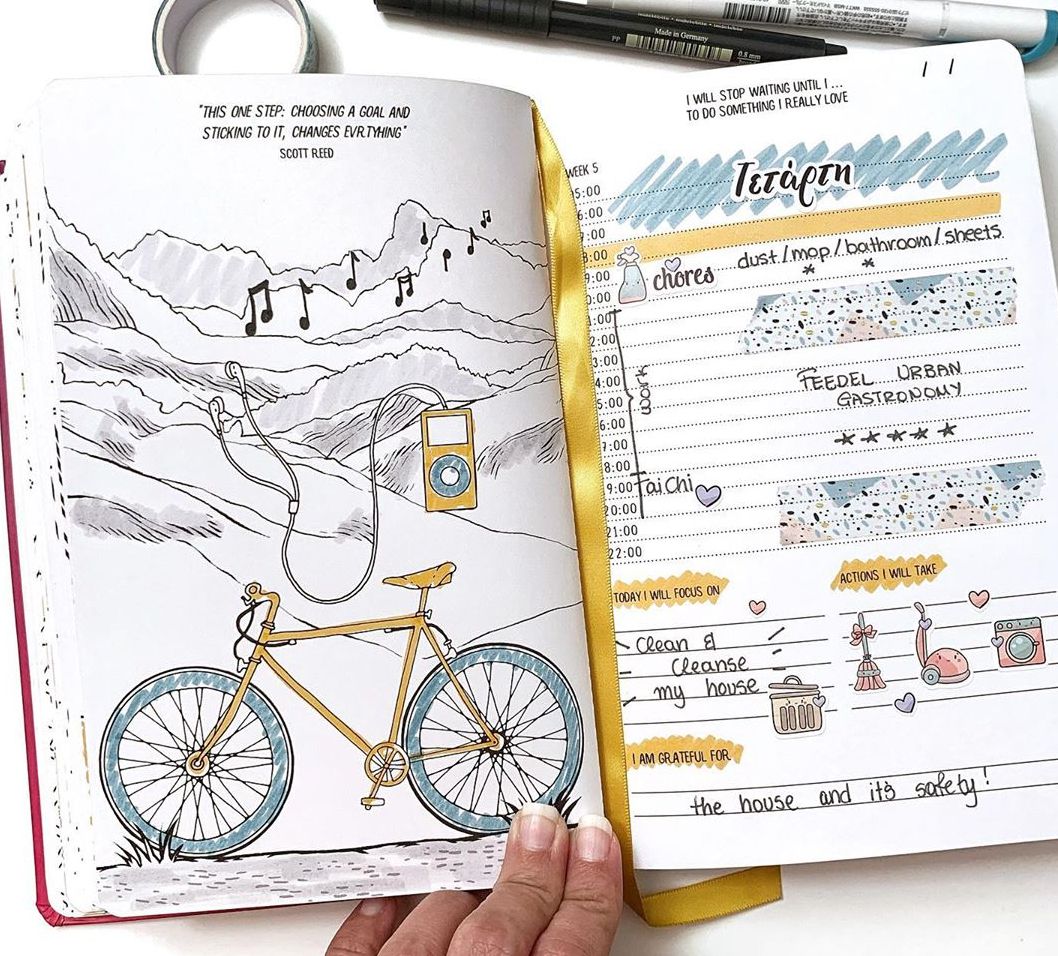 Made in Germany
PP
0.8 mm
"THIS ONE STEP: CHOOSING A GOAL AND
STICKING TO IT, CHANGES EVR.TYHING"
SCOTT REED
I WILL STOP WAITING UNTIL I ...
TO DO SOMETHING I REALLY LOVE
WEEK 5
Τετάρτη
5:00
6:00
7:00
8:00
dust / mop / bathroom / sheets
* *
9:00
chores
0:00
1:00
2:00
3:00
FEEDEL URBAN
4:00
GASTRONOMY
5:00
work
6:00
★ ★ ★ ★ ★
7:00
8:00
9:00 Tai Chi
20:00
21:00
22:00
TODAY I WILL FOCUS ON
Clean &
Cleanse
my house
ACTIONS I WILL TAKE
I AM GRATEFUL FOR
the house and it's safety!